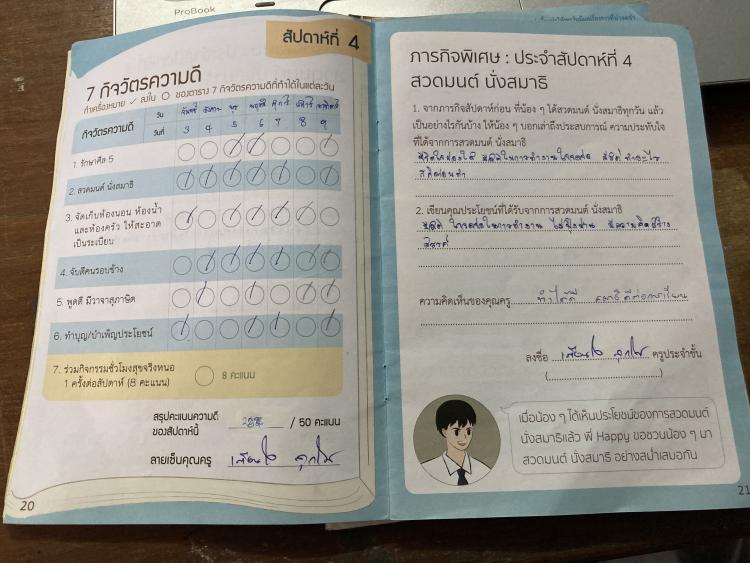 ProBook
สัปดาห์ที่ 4
7 กิจวัตรความดี
ทำเครื่องหมาย ✓ ลงใน ○ ของตาราง 7 กิจวัตรความดีที่ทำได้ในแต่ละวัน
กิจวัตรความดี
วัน จันทร์ อังคาร พุธ พฤหัส ศุกร์ เสาร์ อาทิตย์
วันที่ 3 4 5 6 7 8 9
1. รักษาศีล 5
2. สวดมนต์ นั่งสมาธิ
3. จัดเก็บห้องนอน ห้องน้ำ
และห้องครัว ให้สะอาด
เป็นระเบียบ
4. จับดีคนรอบข้าง
5. พูดดี มีวาจาสุภาษิต
6. ทำบุญ/บำเพ็ญประโยชน์
7. ร่วมกิจกรรมชั่วโมงสุขจริงหนอ
1 ครั้งต่อสัปดาห์ (8 คะแนน)
8 คะแนน
สรุปคะแนนความดี
ของสัปดาห์นี้
/ 50 คะแนน
ลายเซ็นคุณครู
20
ภารกิจพิเศษ : ประจำสัปดาห์ที่ 4
สวดมนต์ นั่งสมาธิ
1. จากภารกิจสัปดาห์ก่อน ที่น้อง ๆ ได้สวดมนต์ นั่งสมาธิทุกวัน แล้ว
เป็นอย่างไรกันบ้าง ให้น้อง ๆ บอกเล่าถึงประสบการณ์ ความประทับใจ
ที่ได้จากการสวดมนต์ นั่งสมาธิ
มีสติในการทำงาน
2. เขียนคุณประโยชน์ที่ได้รับจากการสวดมนต์ นั่งสมาธิ
ในการทำงาน ไม่ฟุ้งซ่าน มีความคิดสร้าง
สรรค์
ความคิดเห็นของคุณครู ทำได้ดี
ลงชื่อ ครูประจำชั้น
เมื่อน้อง ๆ ได้เห็นประโยชน์ของการสวดมนต์
นั่งสมาธิแล้ว พี่ Happy ขอชวนน้อง ๆ มา
สวดมนต์ นั่งสมาธิ อย่างสม่ำเสมอกัน
21